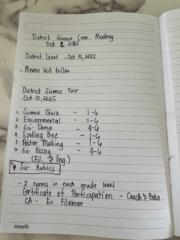 District Science Comm. Meeting
Oct. 8, 2025
District Level - Oct. 10, 2025
- Memo Will follow
District Science Fair
Oct. 10, 2025
1. Science Quiz - 1-6
2. Environmental - 1-6
3. Sci-Dama - 4-6
4. Spelling Bee - 1-6
5. Poster Making - 1-6
6. Sci-Essay - 4-6
(Fil. & Eng.)
* Sci-Rubics
- 2 rooms in each grade level
Certificate of Participation - Coach &
CA - Sir Filamer